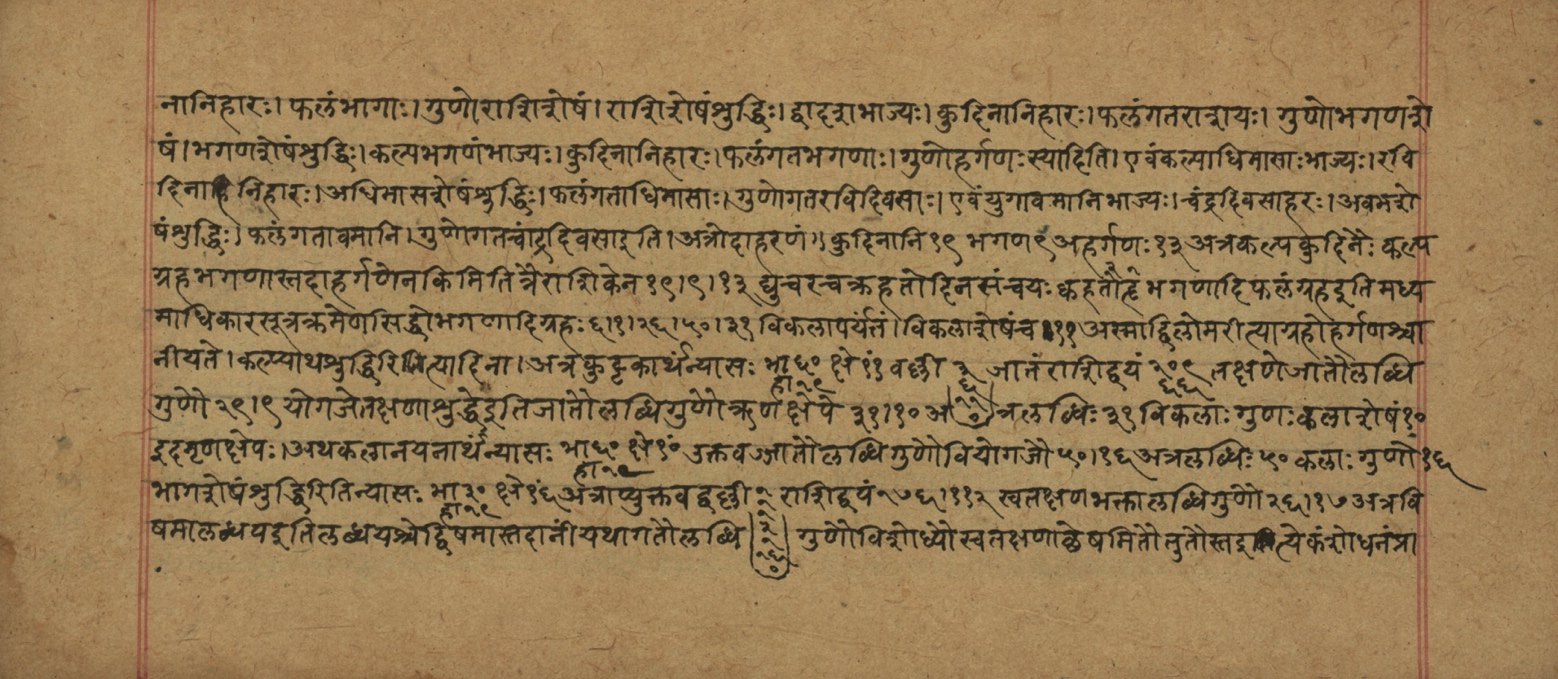 नानिहारः। फलंभागाः। गुणोराशिशेषं। राशिशेषंशुद्धिः। द्वादशभाज्यः। कुदिनानिहारः। फलंगतराशयः। गुणोभगणशे
षं। भगणशेषंशुद्धिः। कल्पभगणंभाज्यः। कुदिनानिहारः। फलंगतभगणाः। गुणोहर्गणःस्यादिति। एवंकल्पाधिमासाःभाज्यः। रवि
दिनानिहारः। अधिमासशेषंशुद्धिः। फलंगताधिमासाः। गुणोगतरविदिवसाः। एवंयुगावमानिभाज्यः। चंद्रदिवसाहरः। अवमशे
षंशुद्धिः। फलंगतावमानि। गुणोगतचांद्रदिवसाइति। अत्रोदाहरणं॥ कुदिनानि १९ भगण ९ अहर्गणः १३ अत्रकल्पकुदिनैः कल्प
ग्रहभगणास्तदाहर्गणेनकिमितित्रैराशिकेन १९।९।१३ द्युचरचक्रहतोदिनसंचयः क्वहतो भगणादिफलंग्रहइतिमध्य
माधिकारसूत्रक्रमेणसिद्धोभगणादिग्रहः ६।१।२६।५०।३१ विकलापर्यंतं। विकलाशेषंच ११ अस्माद्विलोमरीत्याग्रहोहर्गणश्चा
नीयते। कल्प्याथशुद्धिरित्यादिना। अत्रकुट्टकार्थंन्यासः भा ६० क्षे ११ वल्ली ३ जातंराशिद्वयं तक्षणेजातौलब्धि
हा १९ ६
गुणौ २९।९ योगजेतक्षणाशुद्धेइतिजातौलब्धिगुणौऋणक्षेपे ३१।१० अत्रलब्धिः ३१ विकलाः गुणः कलाशेषं १०
इदमृणक्षेपः। अथकलानयनार्थंन्यासः भा ६० क्षे १० उक्तवज्जातौलब्धिगुणौवियोगजौ ५०।१६ अत्रलब्धिः ५० कलाः गुणो १६
हा १९
भागशेषंशुद्धिरितिन्यासः भा ३० क्षे १६ अत्राप्युक्तवद्वल्ली राशिद्वयं १७६।११२ स्वतक्षणभक्तालब्धिगुणौ २६।१७ अत्रवि
हा १९
षमालब्धयइतिलब्धयश्चेद्विषमास्तदानींयथागतौलब्धि गुणौविशोध्यौस्वतक्षणाछेषमितौतुतौस्तइत्येकंशोधनंप्रा